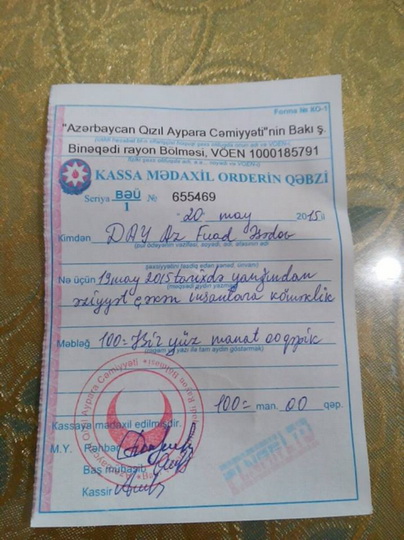 Forma № XO-1
"Azərbaycan Qızıl Aypara Cəmiyyəti"nin Bakı ş.
Binəqədi rayon Bölməsi, VÖEN 1000185791
KASSA MƏDAXİL ORDERİN QƏBZİ
Seriya BƏÜ 1 № 655469
20 may 2015 il
Kimdən DAY Az Fuad
(pul ödəyənin vəzifəsi, soyadı, adı, atasının adı)
Nə üçün 19 may 2015 tarixdə yanğından
əziyyət çəkən insanlara köməklik
Məbləğ 100= /Bir yüz manat 00 qəpik
100= man. 00 qəp.
Kassaya mədaxil edilmişdir.
M.Y. Rəhbər
Baş mühasib
Kassir